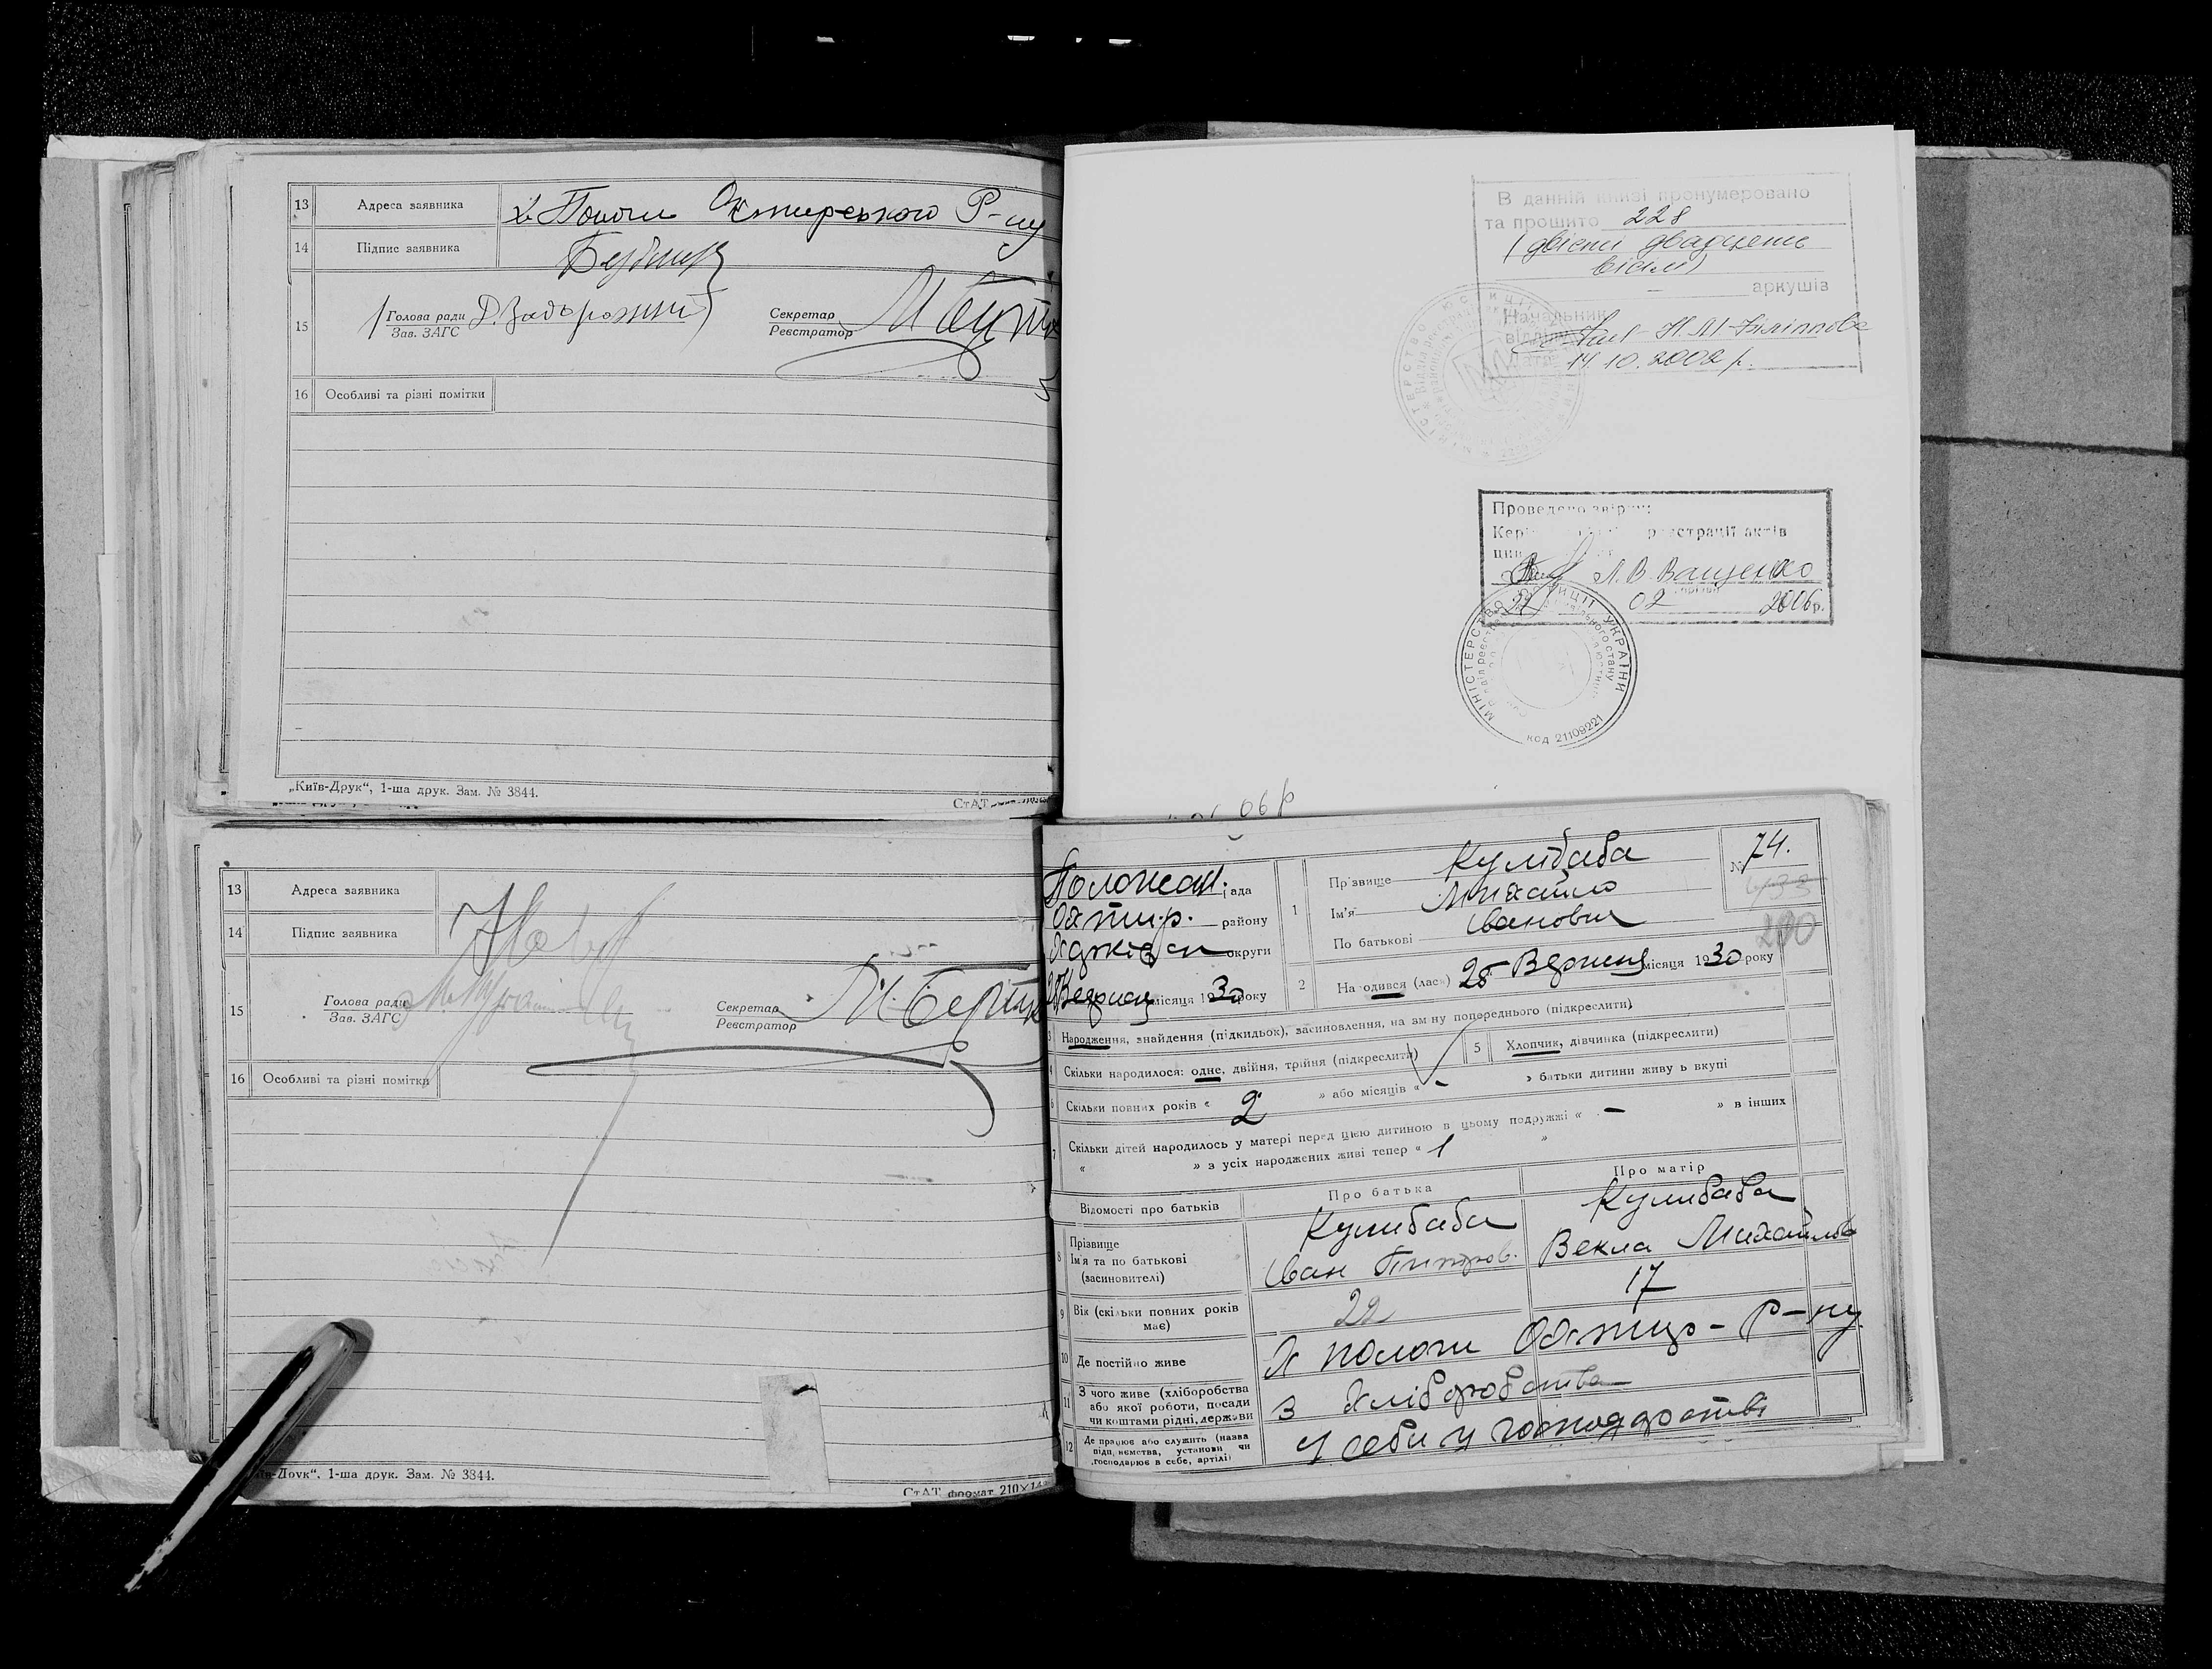 13 Адреса заявника х. Пологи Охтирського Р-ну
14 Підпис заявника
15 Голова ради Д. Задорожний Секретар
Зав. ЗАГС Реєстратор
16 Особливі та різні помітки
„Київ-Друк“, 1-ша друк. Зам. № 3844.
СтАТ
В данній книзі пронумеровано
та прошито 228
(двісти двадцять
вісім)
аркушів
Начальник
відділу
14.10.2002 р.
Проведено звірку
реєстрації актів
Л.В. Ващенко
02 2006р.
МІНІСТЕРСТВО ЮСТИЦІЇ УКРАЇНИ
код 21109221
06 р
13 Адреса заявника
14 Підпис заявника
15 Голова ради Секретар
Зав. ЗАГС Реєстратор
16 Особливі та різні помітки
1-ша друк. Зам. № 3844.
СтАТ формат 210×14
рада
Охтир. району
округи
Вересня місяця 1930 року
1 Прізвище Кулибаба
Ім'я Михайло
По батькові Іванович
№ 74.
2 Народився (лась) 25 Вересня місяця 1930 року
3 Народження, знайдення (підкидьок), засиновлення, на зміну попереднього (підкреслити)
4 Скільки народилося: одне, двійня, трійня (підкреслити) 5 Хлопчик, дівчинка (підкреслити)
6 Скільки повних років « 2 » або місяців « - » батьки дитини живуть вкупі
7 Скільки дітей народилось у матері перед цією дитиною в цьому подружжі « - » в інших
« » з усіх народжених живі тепер « 1 »
Відомості про батьків Про батька Про матір
8 Прізвище Кулибаба Кулибаба
Ім'я та по батькові Іван Питров. Векла Михайлов
(засиновителі)
9 Вік (скільки повних років має) 22 17
10 Де постійно живе Х Пологи Охтир- р-ну
11 З чого живе (хліборобства або якої роботи, посади чи коштами рідні, держави З Хліборобства
12 Де працює або служить (назва підприємства, установи чи господарює в себе, артілі) У себи у господарстві